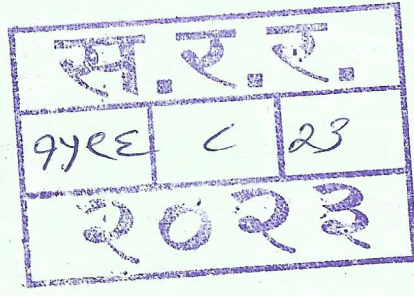 स.र.र.
१५९६ ८ २३
२०२३